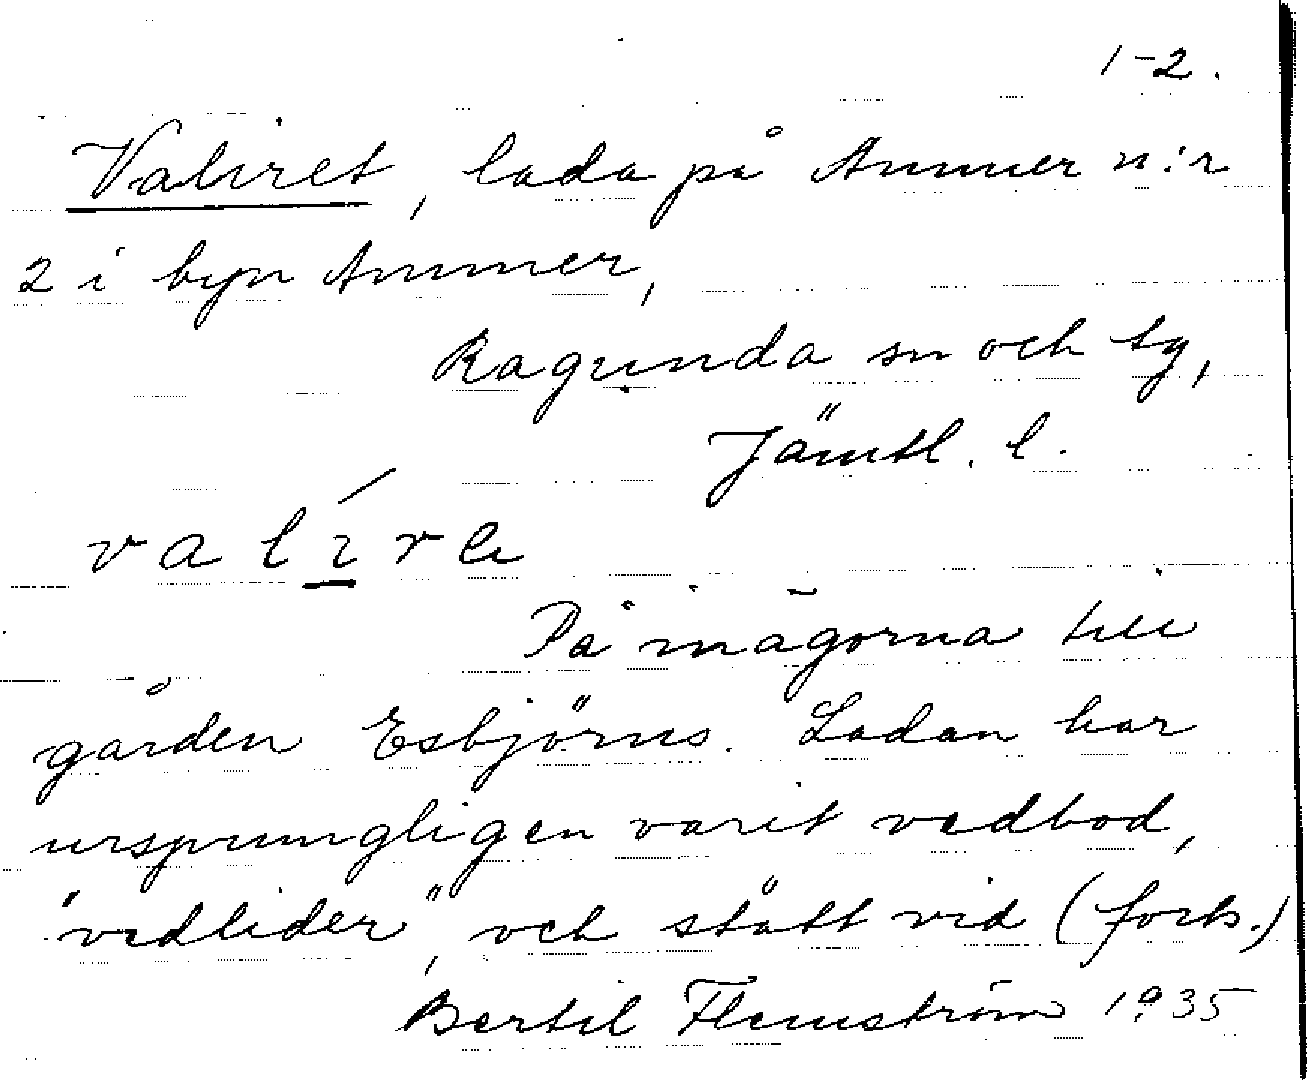 1-2.
Valiret, lada på Ammer n:r
2 i byn Ammer,
Ragunda sn och tg,
Jämtl. l.
På inägorna till
gården Esbjörns. Ladan har
ursprungligen varit vedbod,
"vedlider", och stått vid (forts.)
Bertil Flemström 1935